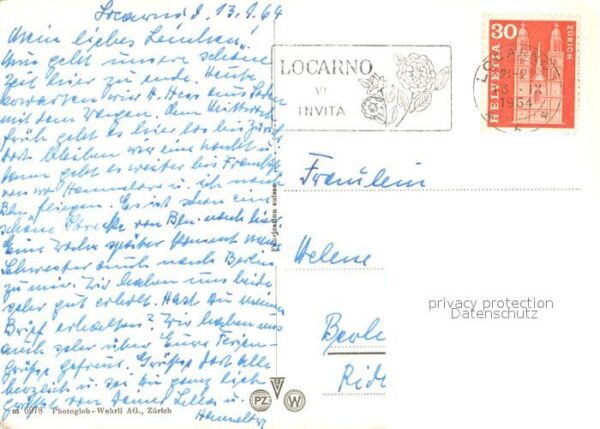 Locarno, d. 13.9.64
Mein liebes Lenchen!
Nun geht unsere schöne
Zeit hier zu ende. Heute
erwarten wir H. Hess aus
mit dem Wagen. Am Mittwoch
früh geht es hier los bis Zürich
dort bleiben wir eine nacht u.
dann geht es weiter bis Frankft.
von wo Hannelore u. ich nach
Bln. fliegen. Es ist schon eine
schöne Strecke von Bln. nach hier.
Eine Woche später kommt meine
Schwester auch nach Berlin
zu mir. Wir haben uns beide
sehr gut erholt. Hast du meinen
Brief erhalten? Wir haben uns
auch sehr über Eure Ferien-
grüße gefreut. Grüße dort alle
herzlich u. sei du ganz lieb
gegrüßt von Deiner u.
Hannelore
m 6978 Photoglob-Wehrli AG., Zürich
LOCARNO
VI
INVITA
30
HELVETIA
ZÜRICH
LOCARNO
1964
Fabrication suisse
Fräulein
Helene
privacy protection
Datenschutz
Berli
PZ
W